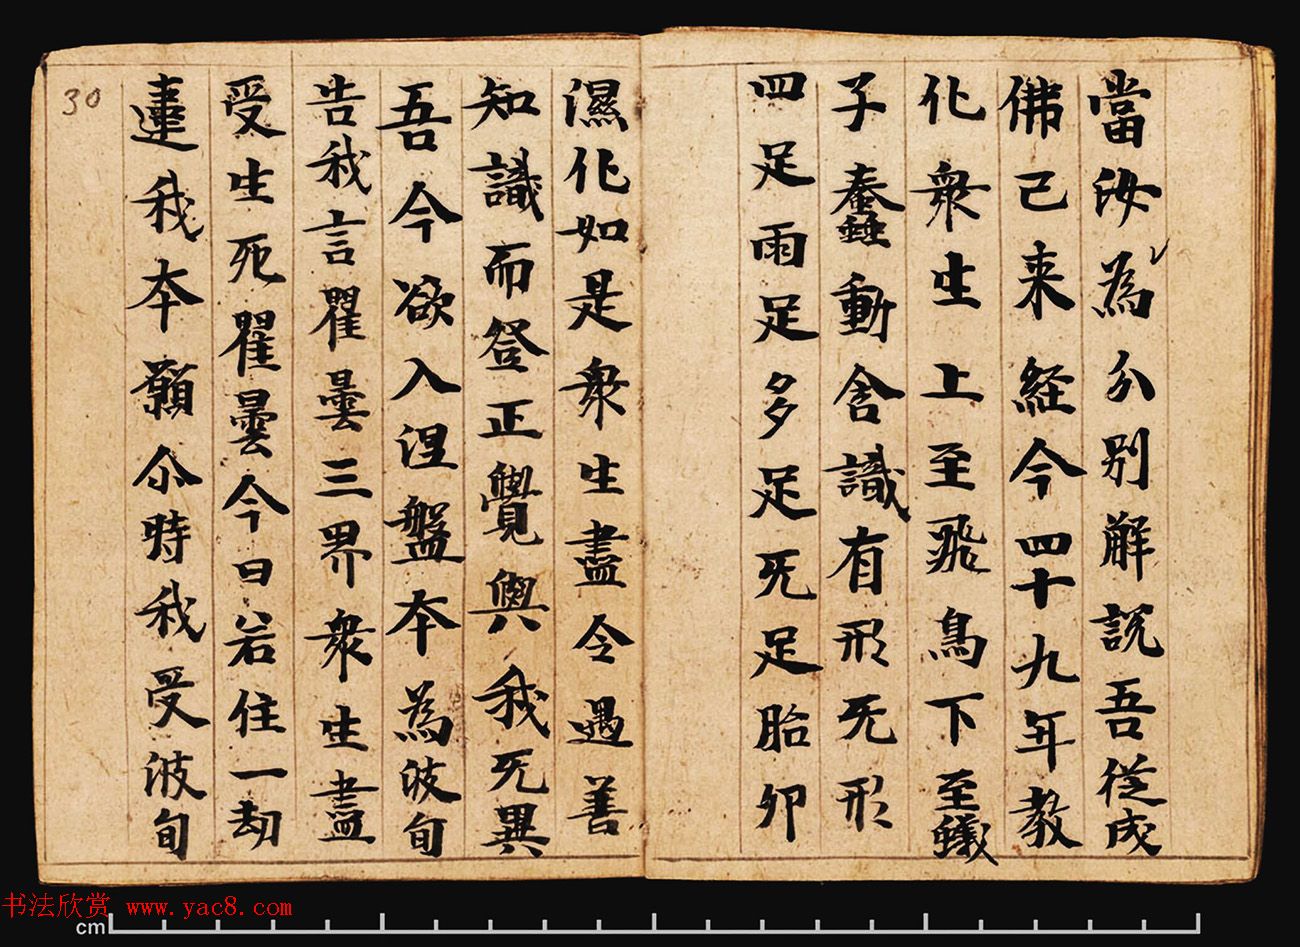 當汝為分別解說吾從成
佛已来経今四十九年教
化衆生上至飛鳥下至蟻
子蠢動含識有形无形
四足兩足多足无足胎卵
濕化如是衆生盡令遇善
知識而登正覺與我无異
吾今欲入涅盤本為波旬
告我言瞿曇三界衆生盡
受生死瞿曇今日若住一劫
違我本願尒時我受波旬
30
书法欣赏 www.yac8.com
cm